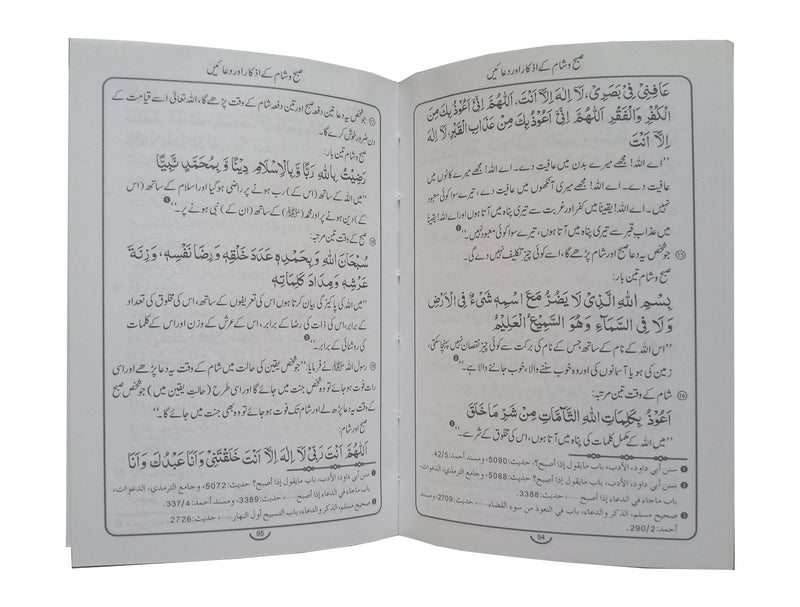 صبح و شام کے اذکار اور دعائیں
عَافِنِیْ فِیْ بَصَرِیْ، لَا اِلٰهَ اِلَّا اَنْتَ، اَللّٰهُمَّ اِنِّیْ اَعُوْذُ بِكَ مِنَ
الْكُفْرِ وَالْفَقْرِ اَللّٰهُمَّ اِنِّیْ اَعُوْذُ بِكَ مِنْ عَذَابِ الْقَبْرِ لَا اِلٰهَ
اِلَّا اَنْتَ
’’اے اللہ! مجھے میرے بدن میں عافیت دے۔ اے اللہ! مجھے میرے کانوں میں
عافیت دے۔ اے اللہ! مجھے میری آنکھوں میں عافیت دے، تیرے سوا کوئی معبود
نہیں۔ اے اللہ! یقیناً میں کفر اور غربت سے تیری پناہ میں آتا ہوں اور اے اللہ! یقیناً
میں عذاب قبر سے تیری پناہ میں آتا ہوں، تیرے سوا کوئی معبود نہیں۔‘‘❶
⑮ جو شخص یہ دعا صبح اور شام پڑھے گا، اسے کوئی چیز تکلیف نہیں دے گی۔
صبح و شام تین بار:
بِسْمِ اللهِ الَّذِیْ لَا یَضُرُّ مَعَ اسْمِهٖ شَیْءٌ فِی الْاَرْضِ
وَلَا فِی السَّمَآءِ وَهُوَ السَّمِیْعُ الْعَلِیْمُ
’’اس اللہ کے نام کے ساتھ جس کے نام کی برکت سے کوئی چیز نقصان نہیں پہنچا سکتی،
زمین کی ہو یا آسمانوں کی اور وہ خوب سننے والا، خوب جاننے والا ہے۔‘‘❷
⑯ شام کے وقت تین مرتبہ:
اَعُوْذُ بِكَلِمَاتِ اللهِ التَّآمَّاتِ مِنْ شَرِّ مَا خَلَقَ
’’میں اللہ کے مکمل کلمات کی پناہ میں آتا ہوں، اس کی مخلوق کے شر سے۔‘‘❸
❶ سنن أبي داود، الأدب، باب مايقول إذا أصبح؟، حديث:5090، ومسند أحمد:42/5.
❷ سنن أبي داود، الأدب، باب مايقول إذا أصبح، حديث:5088، وجامع الترمذي، الدعوات،
باب ماجاء في الدعاء إذا أصبح ......، حديث:3388.
❸ صحيح مسلم، الذكر والدعاء، باب في التعوذ من سوء القضاء ......، حديث:2709، ومسند
أحمد:290/2.
94
صبح و شام کے اذکار اور دعائیں
⑰ جو شخص یہ دعا تین دفعہ صبح اور تین دفعہ شام کے وقت پڑھے گا، اللہ تعالیٰ اسے قیامت کے
دن ضرور خوش کرے گا۔
صبح و شام تین بار:
رَضِیْتُ بِاللهِ رَبًّا وَّ بِالْاِسْلَامِ دِیْنًا وَّ بِمُحَمَّدٍ نَّبِیًّا
’’میں اللہ کے ساتھ (اس کے) رب ہونے پر راضی ہو گیا اور اسلام کے ساتھ (اس
کے) دین ہونے پر اور محمد (ﷺ) کے ساتھ (ان کے) نبی ہونے پر۔‘‘❶
⑱ صبح کے وقت تین مرتبہ:
سُبْحَانَ اللهِ وَ بِحَمْدِهٖ عَدَدَ خَلْقِهٖ وَرِضَا نَفْسِهٖ، وَزِنَةَ
عَرْشِهٖ وَمِدَادَ كَلِمَاتِهٖ
’’میں اللہ کی پاکیزگی بیان کرتا ہوں اس کی تعریفوں کے ساتھ، اس کی مخلوق کی تعداد
کے برابر، اس کی ذات کی رضا کے برابر، اس کے عرش کے وزن اور اس کے کلمات
کی روشنائی کے برابر۔‘‘❷
⑲ رسول اللہ ﷺ نے فرمایا: ’’جو شخص یقین کی حالت میں شام کے وقت یہ دعا پڑھے اور اسی
رات فوت ہو جائے تو وہ شخص جنت میں جائے گا اور اسی طرح (حالت یقین میں) جو شخص صبح
کے وقت یہ دعا پڑھ لے اور شام تک فوت ہو جائے تو وہ بھی جنت میں جائے گا۔‘‘
صبح اور شام:
اَللّٰهُمَّ اَنْتَ رَبِّیْ لَا اِلٰهَ اِلَّا اَنْتَ خَلَقْتَنِیْ وَاَنَا عَبْدُكَ وَاَنَا
❶ سنن أبي داود، الأدب، باب مايقول إذا أصبح؟، حديث:5072، وجامع الترمذي، الدعوات،
باب ماجاء في الدعاء إذا أصبح ......، حديث:3389، ومسند أحمد:337/4.
❷ صحيح مسلم، الذكر والدعاء، باب التسبيح أول النهار ......، حديث:2726.
95